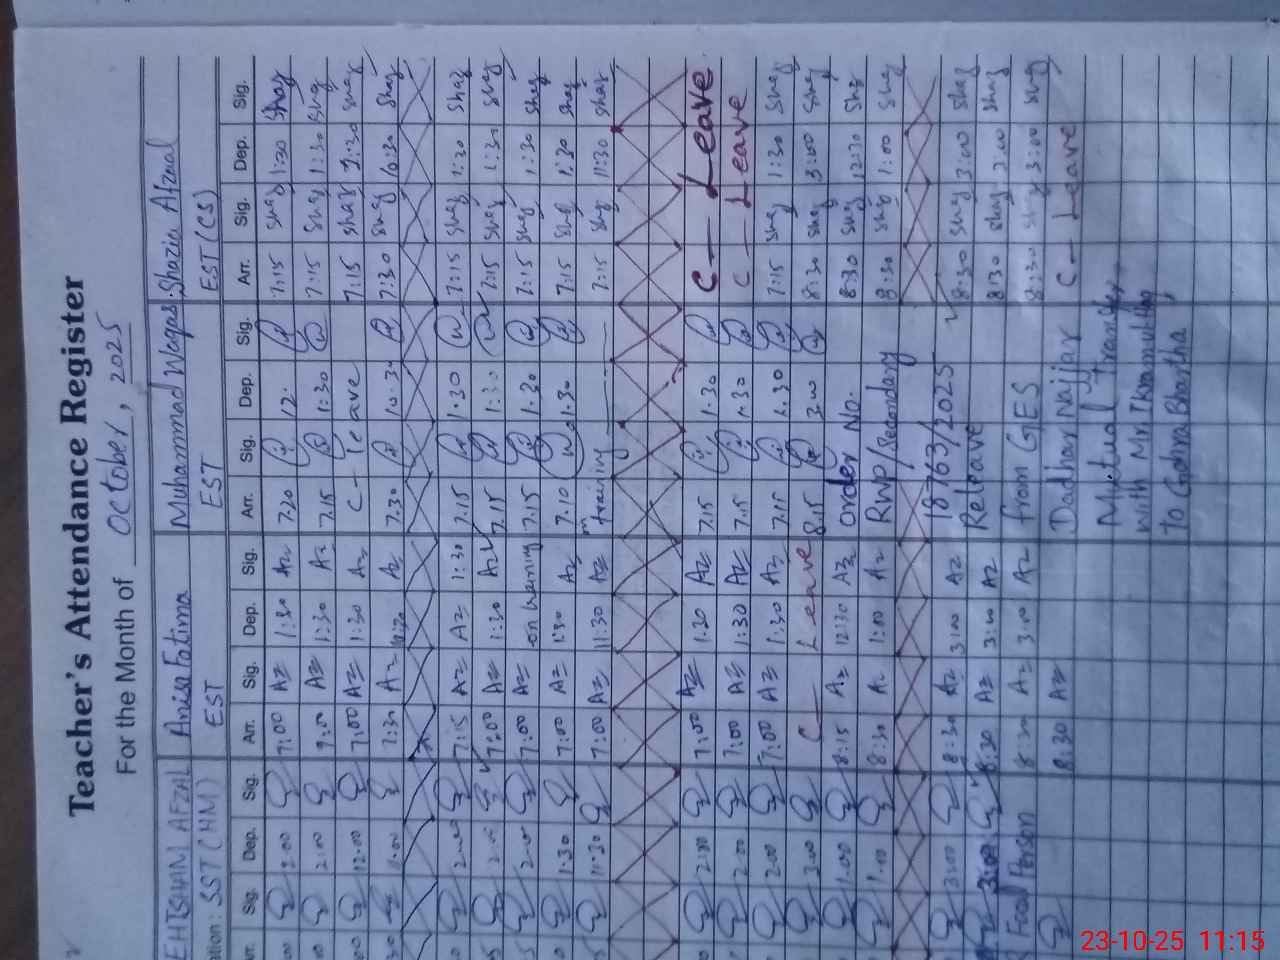 Teacher's Attendance Register
For the Month of October, 2025
EHTISHAM AFZAL Anisa Fatima Muhammad Waqas Shazia Afzaal
SST (HM) EST EST EST (CS)
Arr. Sig. Dep. Sig. Arr. Sig. Dep. Sig. Arr. Sig. Dep. Sig. Arr. Sig. Dep. Sig.
2:00 7:00 Az 1:30 Az 7:20 12. 7:15 Shaz 1:30 Shaz
2:00 7:00 Az 1:30 Az 7.15 1:30 7:15 Shaz 1:30 Shaz
12:00 7:00 Az 1:30 Az C- leave 7:15 Shaz 1:30 Shaz
7:30 Az Az 7.30 10:30 7:30 Shaz 10:30 Shaz
2:00 7:15 Az Az 1:30 7.15 1.30 7:15 Shaz 1:30 Shaz
2:00 7:00 Az 1:30 Az 7.15 1:30 7:15 Shaz 1:30 Shaz
2:00 7:00 Az on training 7.15 1.30 7:15 Shaz 1:30 Shaz
1:30 7:00 Az 1:30 Az 7.10 1.30 7:15 Shaz 1:30 Shaz
11:30 7:00 Az 11:30 Az training 7:15 Shaz 11:30 Shaz
2:00 7:00 Az 1:30 Az 7.15 1.30 C - Leave
2:00 7:00 Az 1:30 Az 7.15 1.30 C - Leave
2:00 7:00 Az 1:30 Az 7.15 1.30 7:15 Shaz 1:30 Shaz
3:00 C - Leave 8.15 3:00 8:30 Shaz 3:00 Shaz
1:00 8:15 Az 12:30 Az Order No. 8:30 Shaz 12:30 Shaz
1:00 8:30 Az 1:00 Az Rwp/Secondary 8:30 Shaz 1:00 Shaz
3:00 8:30 Az 3:00 Az 18763/2025 8:30 Shaz 3:00 Shaz
3:00 8:30 Az 3:00 Az Releave 8:30 Shaz 3:00 Shaz
Focal Person 8:30 Az 3:00 Az from GES 8:30 Shaz 3:00 Shaz
8:30 Az Dadhar Najjar C - Leave
Mutual Transfer
with Mr. Ikramullah
to Gohra Bhartha
23-10-25 11:15